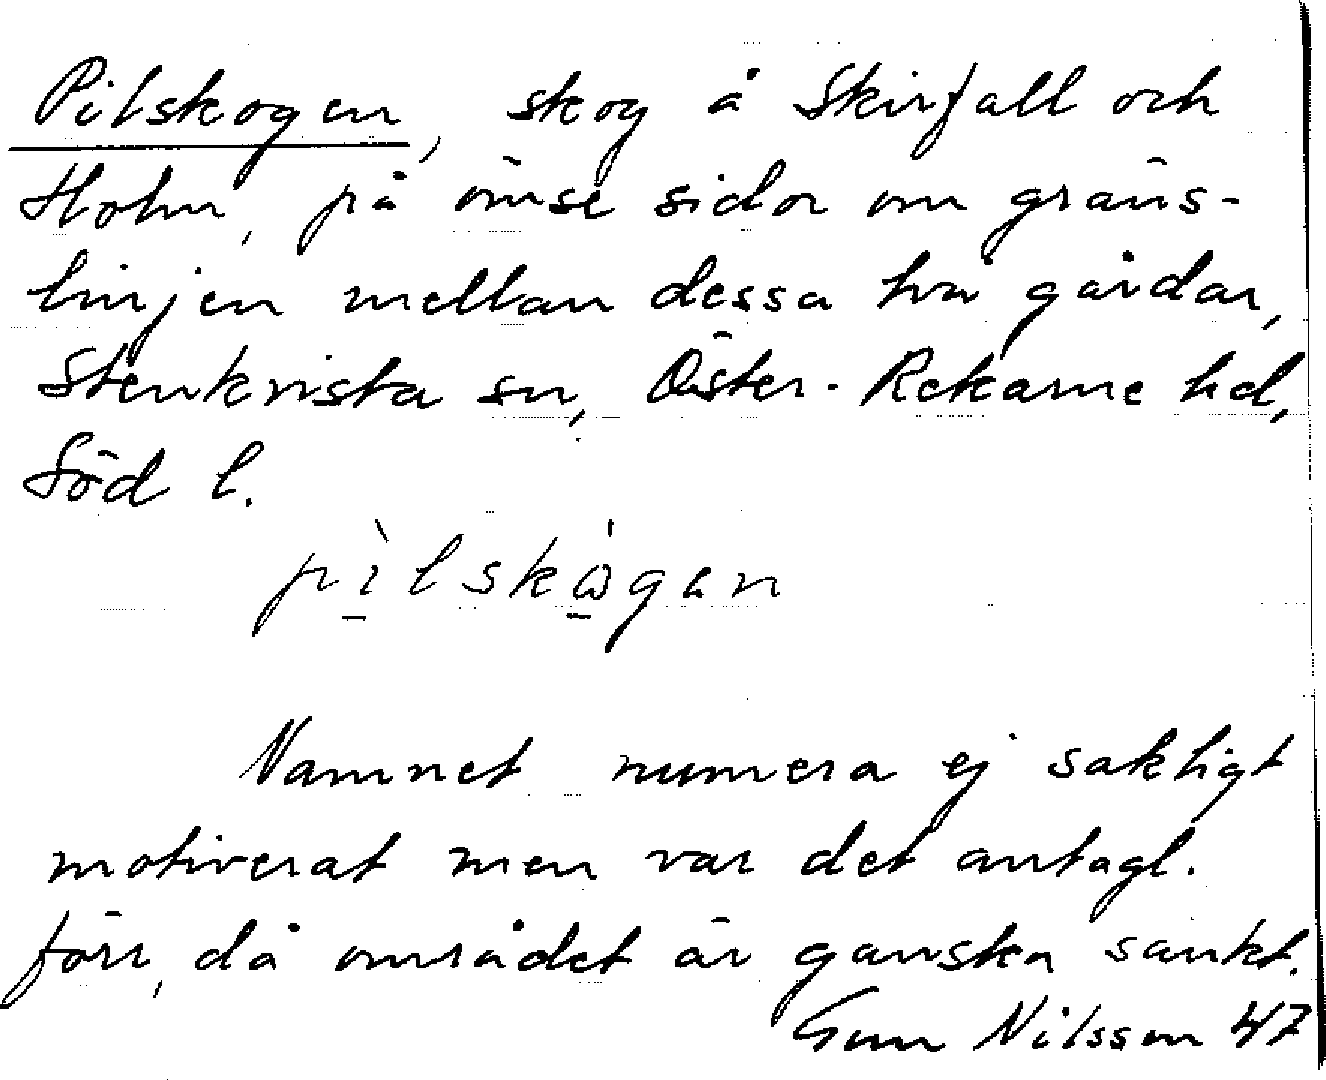 Pilskogen, skog å Skirfall och
Holm, på ömse sidor om gräns-
linjen mellan dessa två gårdar,
Stenkvista sn, Öster-Rekarne hd,
Söd l.
pìlskågan
Namnet numera ej sakligt
motiverat men var det antagl.
förr, då området är ganska sankt.
Gun Nilsson 47